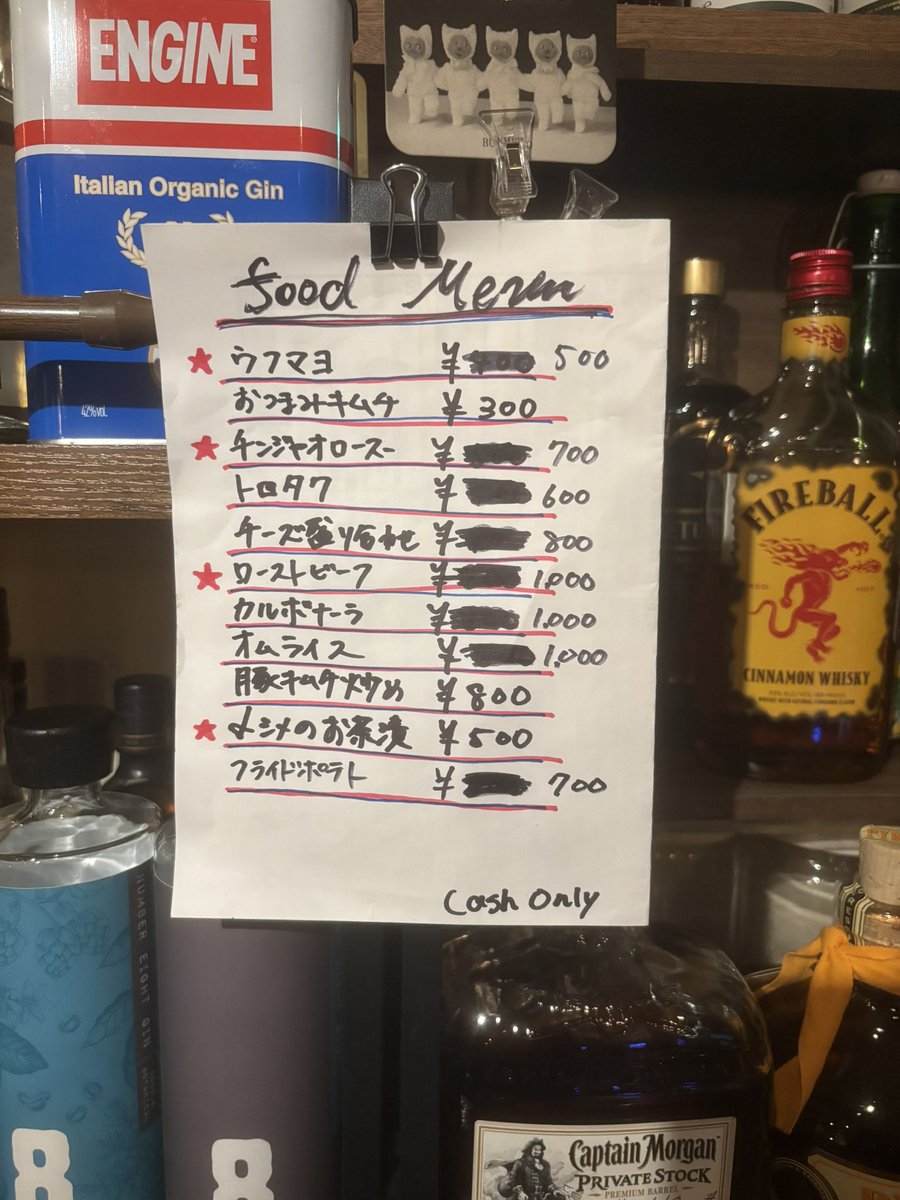 ENGINE
Italian Organic Gin
42% VOL
Food Menu
★ ウフマヨ ¥ 500
おつまみキムチ ¥300
★ チンジャオロース ¥ 700
トロタク ¥ 600
チーズ盛り合わせ ¥ 800
★ ローストビーフ ¥ 1,000
カルボナーラ ¥ 1,000
オムライス ¥ 1,000
豚キムチ炒め ¥800
★ 〆シメのお茶漬 ¥500
フライドポテト ¥ 700
Cash Only
FIREBALL
RED HOT
CINNAMON WHISKY
NUMBER EIGHT GIN
8
8
Captain Morgan
PRIVATE STOCK
PREMIUM BARREL